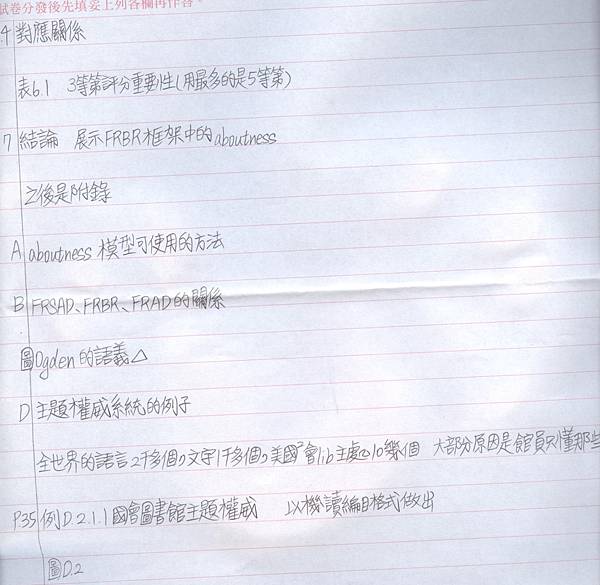 試卷分發後先填妥上列各欄再作答。
.4 對應關係
表6.1 3等第評分重要性(用最多的是5等第)
7 結論 展示FRBR框架中的aboutness
之後是附錄
A aboutness 模型可使用的方法
B FRSAD、FRBR、FRAD的關係
圖Ogden的語義△
D 主題權威系統的例子
全世界的語言2千多個,文字1千多個,美國²會lib主處 10幾個 大部分原因是館員只懂那些
P35 例D.2.1.1國會圖書館主題權威 以機讀編目格式做出
圖D.2